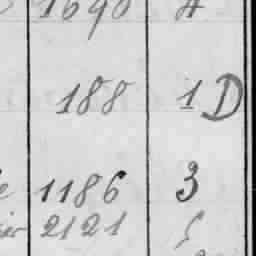 1690 A
188 1D
1186 3
2121